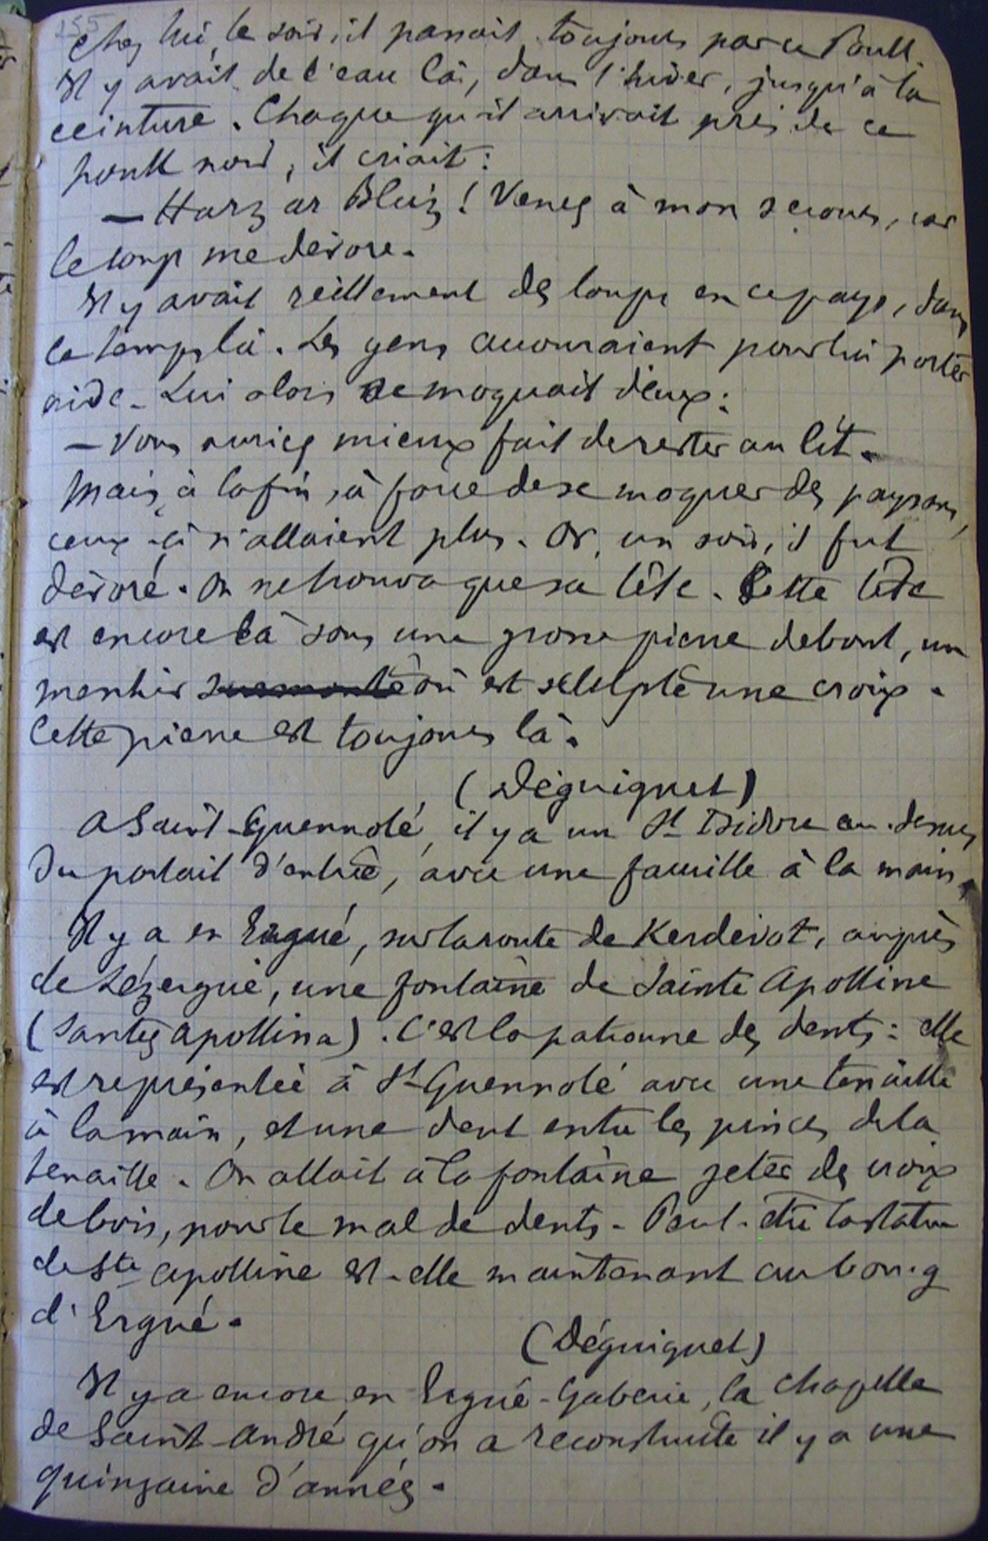 155
chez lui, le soir, il passait toujours par ce Poull.
Il y avait de l'eau là, dans l'hiver, jusqu'à la
ceinture. Chaque qu'il arrivait près de ce
poull noir, il criait :
— Harz ar Bleiz ! Venez à mon secours, car
le loup me dévore.
Il y avait réellement des loups en ce pays, dans
ce temps là. Les gens accouraient pour lui porter
aide. Lui alors se moquait d'eux :
— Vous auriez mieux fait de rester au lit.
Mais, à la fin, à force de se moquer des paysans,
ceux-ci n'allaient plus. Or, un soir, il fut
dévoré. On ne trouva que sa tête. Cette tête
est encore là sous une grosse pierre debout, un
menhir surmonté où est sculpté une croix.
Cette pierre est toujours là.
(Déguignet)
A Saint-Guennolé, il y a un St Isidore au-dessus
du portail d'entrée, avec une faucille à la main.
Il y a en Ergué, sur la route de Kerdévot, auprès
de Lézergué, une fontaine de Sainte Apolline
(Santez Apollina). C'est la patronne des dents : elle
est représentée à St-Guennolé avec une tenaille
à la main, et une dent entre les pinces de la
tenaille. On allait à la fontaine jeter des croix
de bois, pour le mal de dents. Peut-être la statue
de Ste Apolline est-elle maintenant au bourg
d'Ergué.
(Déguignet)
Il y a encore en Ergué-Gabéric, la chapelle
de Saint-André qu'on a reconstruite il y a une
quinzaine d'années.